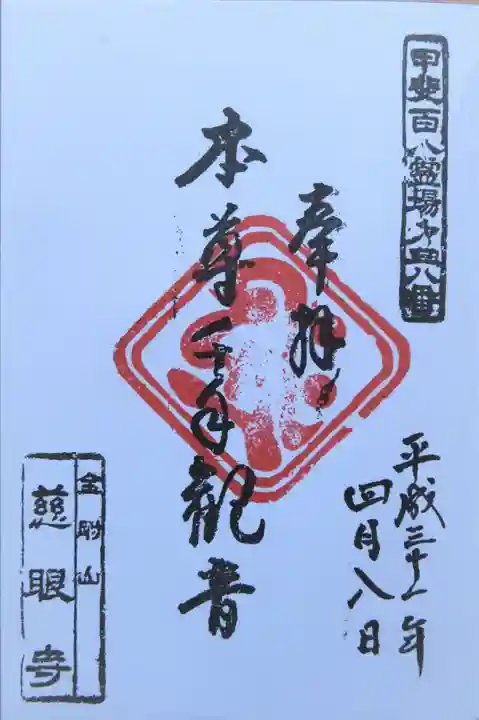 甲斐百八霊場才四八番
奉拝
本尊千手観音
平成三十一年
四月八日
金剛山
慈眼寺